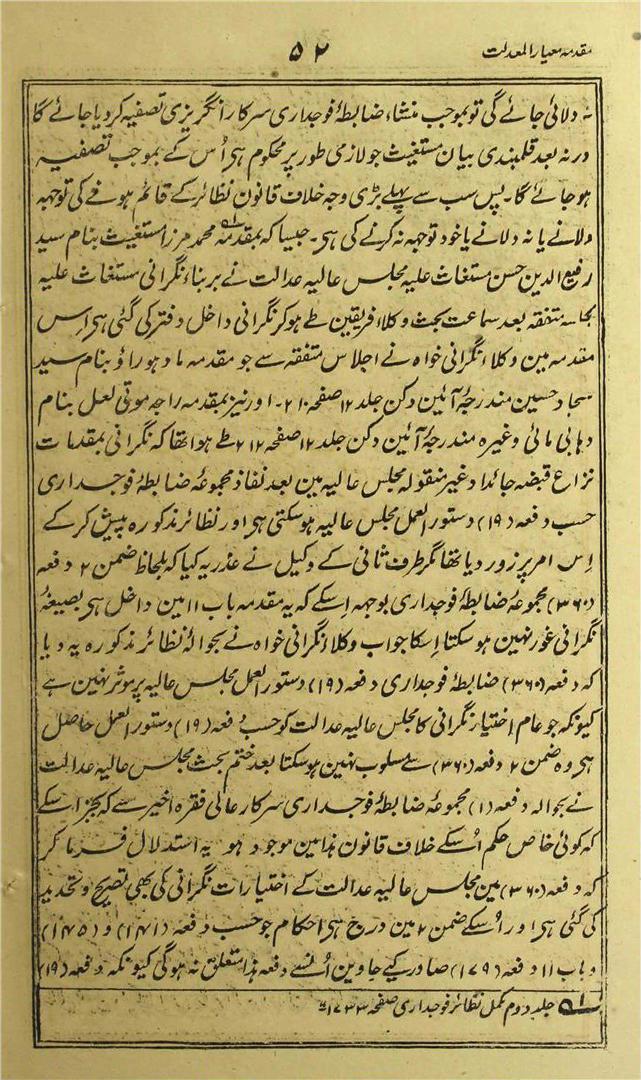 مقدمہ معیار المعدلت
۵۲
نہ دلائی جائے گی تو بموجب منشاء ضابطۂ فوجداری سرکار انگریزی تصفیہ کر دیا جائے گا
ورنہ بعد قلمبندی بیان مستغیث جو لازمی طور پر محکوم ہی اُس کے بموجب تصفیہ
ہو جائے گا۔ پس سب سے پہلے بڑی وجہ خلاف قانون نظائر کے قائم ہونے کی توجہہ
دلانے یا نہ دلانے یا خود توجہ نہ کرنے کی ہی۔ جیسا کہ بمقدمہ محمد مرزا مستغیث بنام سید
رفیع الدین حسن مستغاث علیہ مجلس عالیہ عدالت نے بر بناء نگرانی مستغاث علیہ
متفقہ بعد سماعت بحث وکلاء فریقین طے ہو کر نگرانی داخل دفتر کی گئی ہی اِس
مقدمہ مین وکلاء نگرانی خواہ نے اجلاس متفقہ سے جو مقدمہ مادھو راؤ بنام سید
سجاد حسین مندرجۂ آئین دکن جلد ۱۲ صفحہ ۲۱۰۔ اور نیز بمقدمہ راجہ موتی لعل بنام
وہابی مائی وغیرہ مندرجۂ آئین دکن جلد ۱۲ صفحہ ۲۱۲ طے ہوا تھا کہ نگرانی بمقدمات
نزاع قبضہ جائداد غیر منقولہ مجلس عالیہ مین بعد نفاذ مجموعۂ ضابطۂ فوجداری
حسب دفعہ (۱۹) دستور العمل مجلس عالیہ ہو سکتی ہی اور نظائر مذکورہ پیش کر کے
اِس امر پر زور دیا تھا مگر طرف ثانی کے وکیل نے عذر یہ کیا کہ بلحاظ ضمن ۲ دفعہ
(۳۶۰) مجموعۂ ضابطۂ فوجداری بوجہہ اِسکے کہ یہ مقدمہ باب ۱۱ مین داخل ہی بصیغۂ
نگرانی غور نہین ہو سکتا اِسکا جواب وکلاء نگرانی خواہ نے بحوالۂ نظائر مذکورہ یہ دیا
کہ دفعہ (۳۶۰) ضابطۂ فوجداری دفعہ (۱۹) دستور العمل مجلس عالیہ پر موثر نہین ہے
کیونکہ جو عام اختیار نگرانی کا مجلس عالیہ عدالت کو حسب دفعہ (۱۹) دستور العمل حاصل
ہی وہ ضمن ۲ دفعہ (۳۶۰) سے مسلوب نہین ہو سکتا بعد ختم بحث مجلس عالیہ عدالت
نے بحوالہ دفعہ (۱) مجموعۂ ضابطۂ فوجداری سرکار عالی فقرہ اخیر سے کہ بجز اِسکے
کہ کوئی خاص حکم اُسکے خلاف قانون ہذا مین موجود ہو یہ استدلال فرما کر
کہ دفعہ (۳۶۰) مین مجلس عالیہ عدالت کے اختیارات نگرانی کی بھی تصریح و تحدید
کی گئی ہی اور اُسکے ضمن ۲ مین درج ہی احکام جو حسب دفعہ (۱۴۱) و (۱۴۵)
و باب ۱۱ دفعہ (۱۷۹) صادر کیے جاوین اُنسے دفعہ ہذا متعلق نہ ہوگی کیونکہ دفعہ (۱۹)
۱؎ جلد دوم مکمل نظائر فوجداری صفحہ ۱۷۳۳